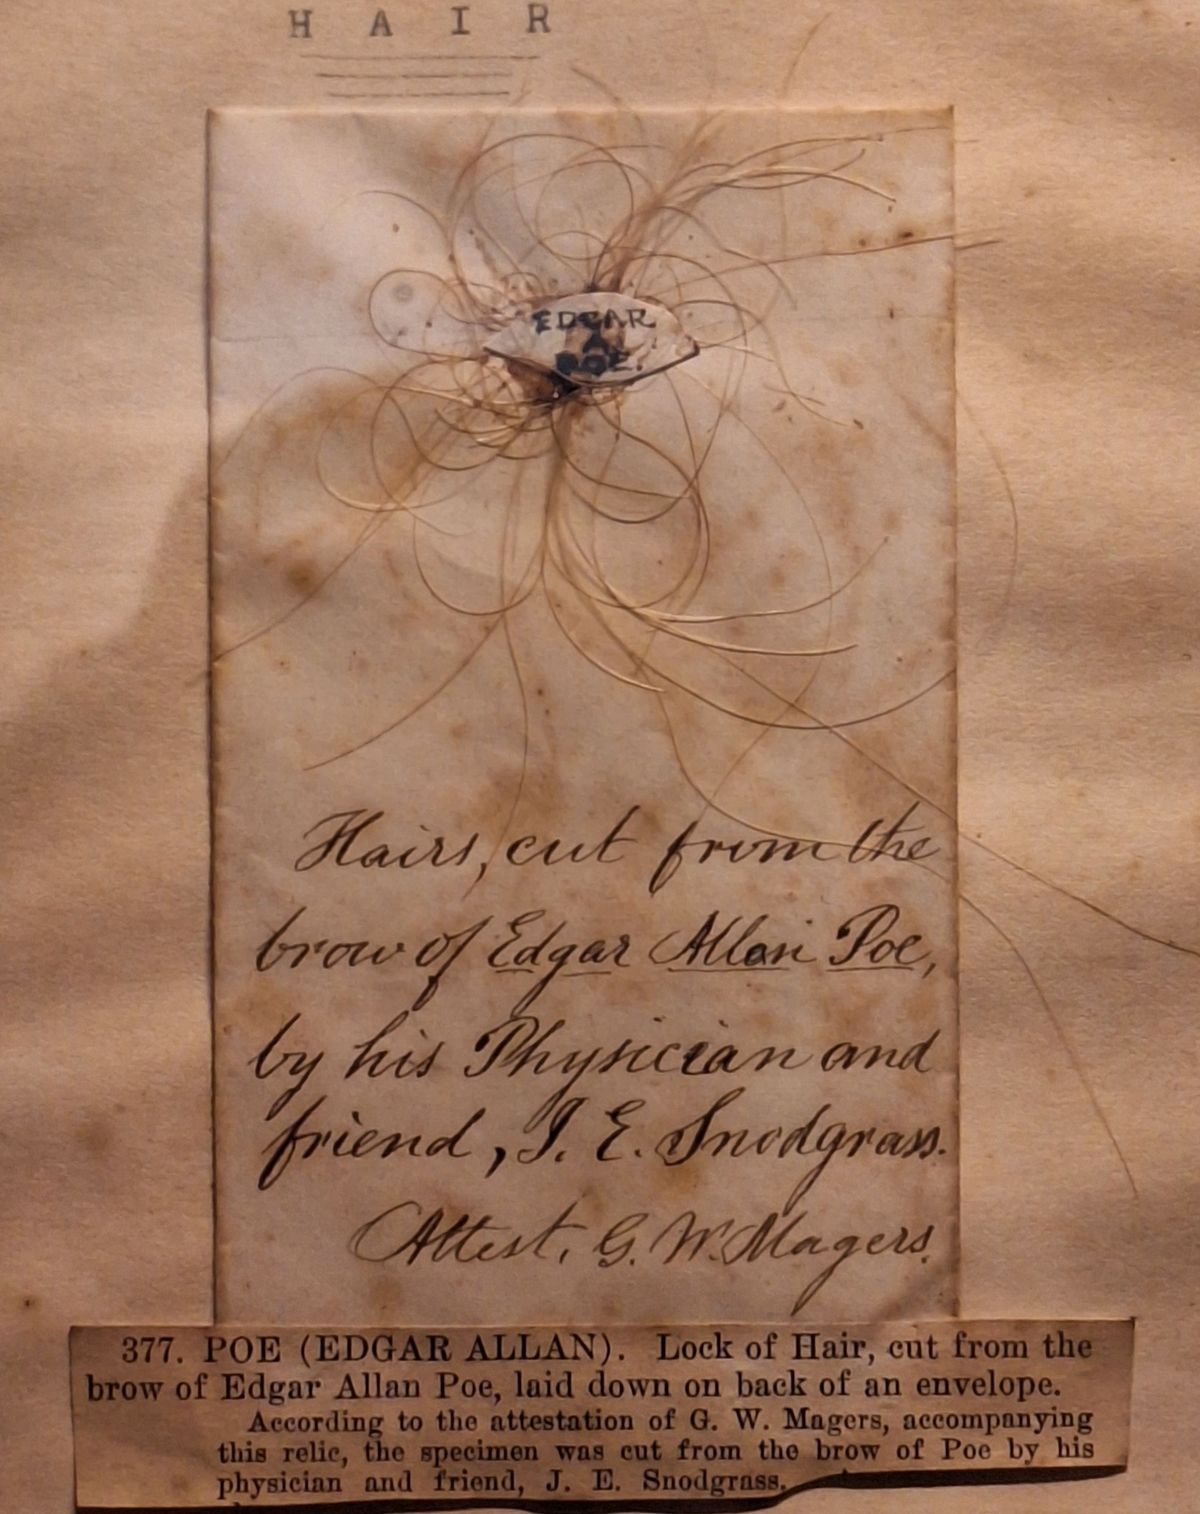 HAIR
EDGAR
A
POE.
Hairs, cut from the
brow of Edgar Allan Poe,
by his Physician and
friend, J. E. Snodgrass.
Attest, G. W. Magers.
377. POE (EDGAR ALLAN). Lock of Hair, cut from the
brow of Edgar Allan Poe, laid down on back of an envelope.
According to the attestation of G. W. Magers, accompanying
this relic, the specimen was cut from the brow of Poe by his
physician and friend, J. E. Snodgrass.